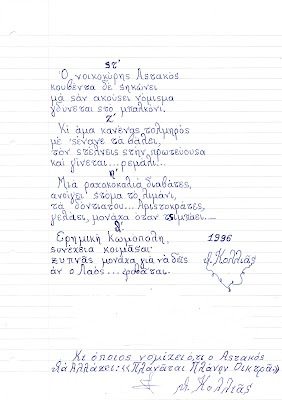 στ'
Ὁ νοικοκύρης Ἀστακός
κουβέντα δὲ σηκώνει
μὰ σὰν ἀκούσει νόμισμα
γδύνεται στὸ μπαλκόνι.
ζ'
Κι ἅμα κανένας τολμηρός
μὲ σένανε τὰ βάλει,
τὸν στέλνεις στὴν πρωτεύουσα
καὶ γίνεται... ρεμάλι!..
η'
Μιὰ ραχοκοκαλιὰ διαβάτες,
ἀνοίγει στόμα τὸ λιμάνι,
τὰ δόντια του... Ἀριστοκράτες,
γελάει, μονάχα ὅταν τσιμπάει
θ'
Ἐρημικὴ Κωμόπολη,
συνέχεια κοιμᾶσαι
ξυπνᾶς μονάχα γιὰ νὰ δεῖς
ἂν ὁ Λαὸς... φοβᾶται.
1996
Κολλιάς
Κι ὅποιος νομίζει ὅτι ὁ Ἀστακὸς
θὰ ἀλλάξει: «Πλανᾶται Πλάνην Οἰκτρά»
Κολλιάς